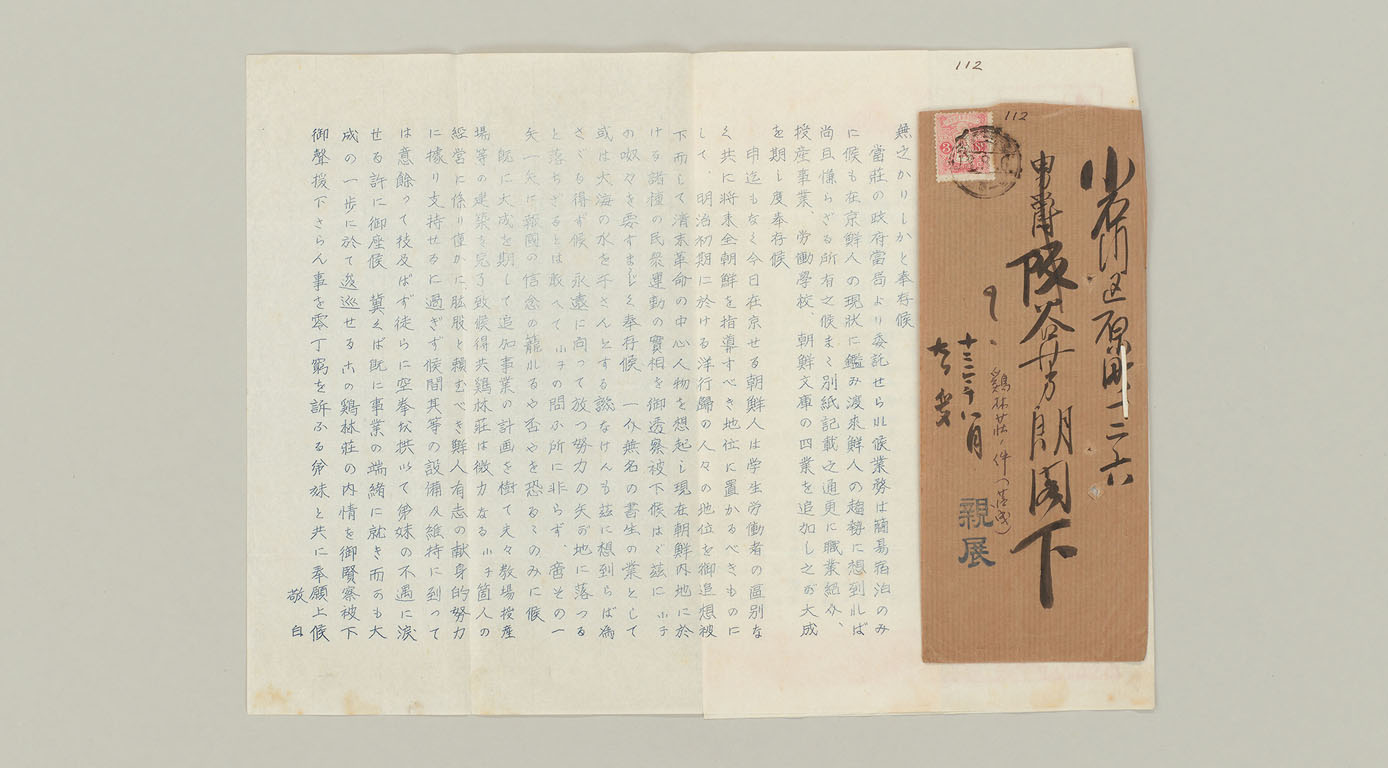 112
112
小石川区原町一二六
男爵 阪谷芳郎閣下
鷄林荘ノ件
十三年八月
親展
無之かりしかと奉存候
當莊の政府當局より委託せられ候業務は簡易宿泊のみ
に候も在京鮮人の現狀に鑑み渡來鮮人の趨勢に想到れば
尚且慊らざる所有之候まゝ別紙記載之通更に職業紹介、
授産事業、労働學校、朝鮮文庫の四業を追加し之が大成
を期し度奉存候
申迄もなく今日在京せる朝鮮人は学生労働者の區別な
く共に將来全朝鮮を指導すべき地位に置かるべきものに
して、明治初期に於ける洋行歸の人々の地位を御追想被
下而して清末革命の中心人物を想起し現在朝鮮内地に於
ける諸種の民衆運動の實相を御透察被下候はゞ茲に小子
の呶々を要すまじく奉存候 一介無名の書生の業として
或は大海の水を干さんとする譏なけんも茲に想到らば為
さゞるを得ず候 永遠に向って放つ努力の矢が地に落つる
と落ちざるとは敢へて小子の問ふ所に非らず、啻その一
矢一矢に報國の信念の籠れるや否やを恐るゝのみに候
既に大成を期して追加事業の計画を樹て夫々教場授産
場等の建築を完了致候得共鷄林莊は微力なる小子箇人の
經営に係り僅かに股肱と頼むべき鮮人有志の献身的努力
に據り支持せるに過ぎず候間其等の設備及維持に到って
は意餘って技及ばず徒らに空拳を拱いて弟妹の不遇に淚
せる許に御座候 冀くば既に事業の端緒に就き而かも大
成の一歩に於て逡巡せる吾の鷄林莊の内情を御賢察被下
御聲援下さらん事を零丁窮を訴ふる弟妹と共に奉願上候
敬白